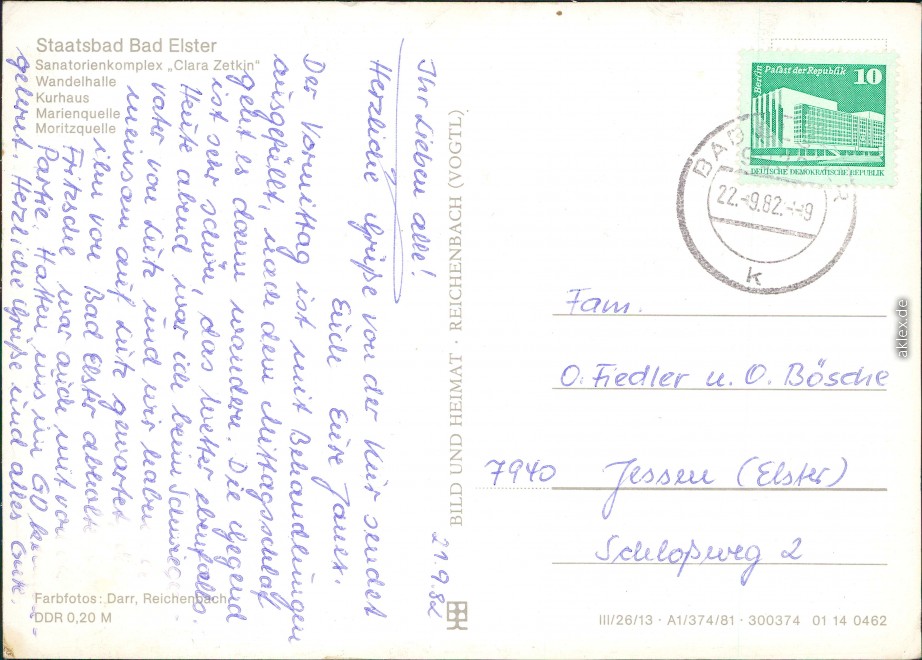 Staatsbad Bad Elster
Sanatorienkomplex „Clara Zetkin"
Wandelhalle
Kurhaus
Marienquelle
Moritzquelle
21.9.82
Ihr Lieben alle!
Herzliche Grüße von der Kur sendet
Euch Eure
Der Vormittag ist mit Behandlungen
ausgefüllt, nach dem Mittagsschlaf
geht es dann wandern. Die Gegend
ist sehr schön, das Wetter ebenfalls.
Heute abend war ich beim
vater von Lutz und wir haben
meinsam auf Lutz gewartet
ihn von Bad Elster abholt
Fritzsche war auch mit von
Partie. Hatten uns in
gelernt. Herzliche Grüße und alles Gute.
Farbfotos: Darr, Reichenbach
DDR 0,20 M
BILD UND HEIMAT · REICHENBACH (VOGTL)
Berlin
Palast der Republik
10
DEUTSCHE DEMOKRATISCHE REPUBLIK
BAD
22.-9.82.--9
k
Fam.
O. Fiedler u. O. Bösche
7940 Jessen (Elster)
Schloßweg 2
III/26/13 · A1/374/81 · 300374 01 14 0462
aklex.de